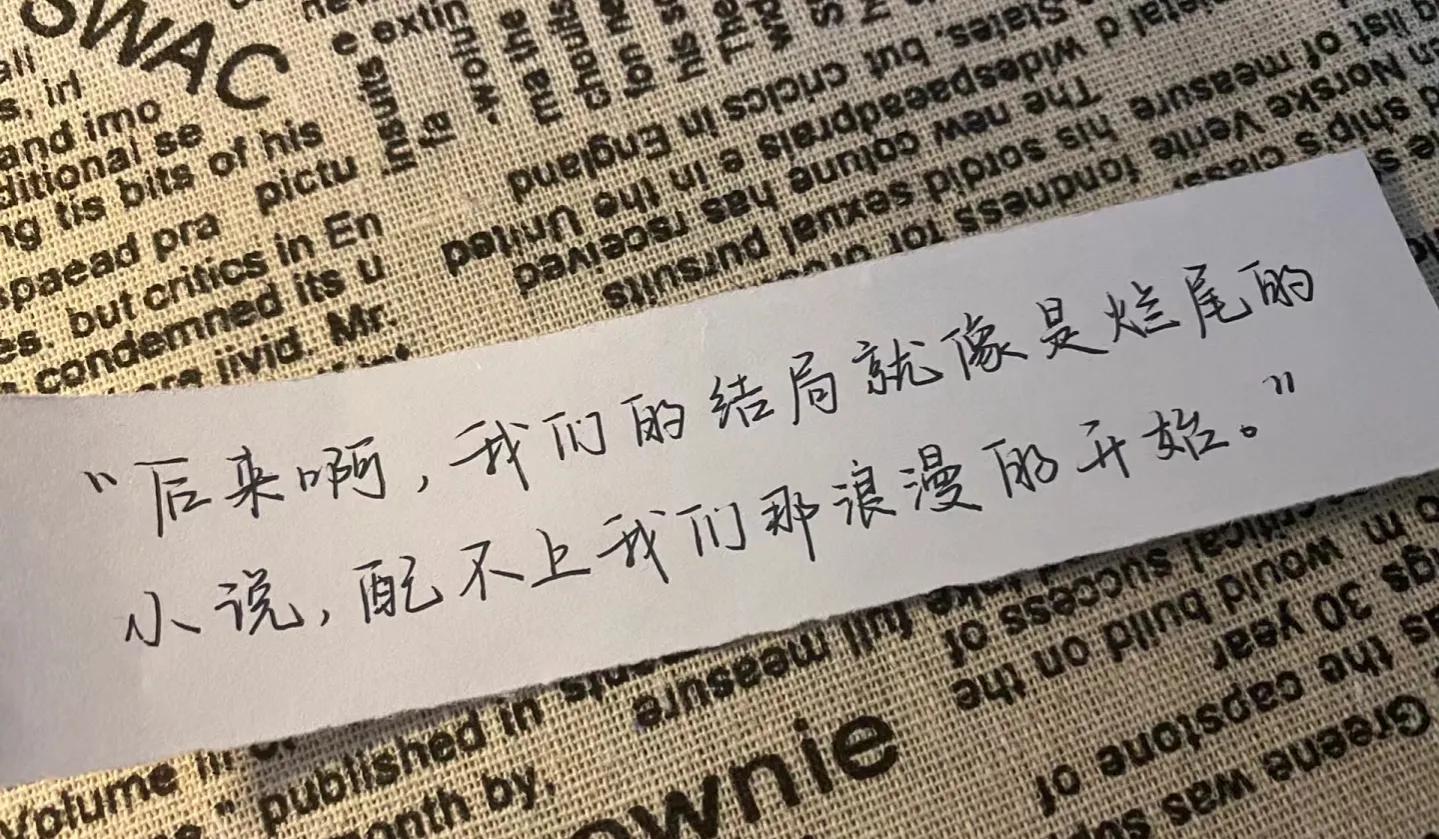 SWAC
all
s, irl
and imo
ditional se
ng tis bits of his
pictu
spaead pra
es. but critics in En
condemned its u
jivid. Mr.
e extin
insuls
the
but cricics in England
widespaeadprals e in the United States,
The new cotune has rsceived
his sordid sexual pursuits
fondness for
Verite
list of measure
Norske
ship's
class,
"后来啊，我们的结局就像是烂尾的
小说，配不上我们那浪漫的开始。"
critical success of
would build on the
full measure
30 year
the capstone of
Greene was
volume
" published in
month by,
ownie